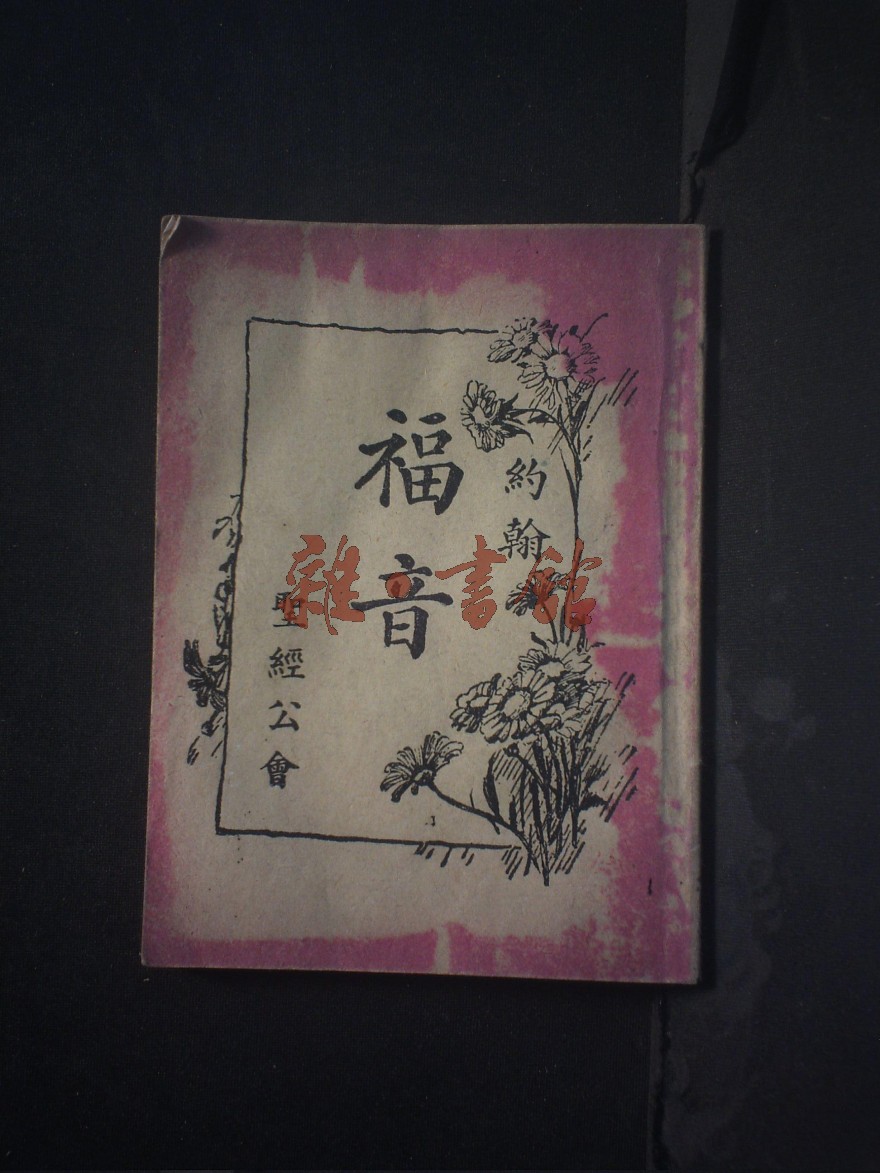 約翰
福音
聖經公會
雜·書館